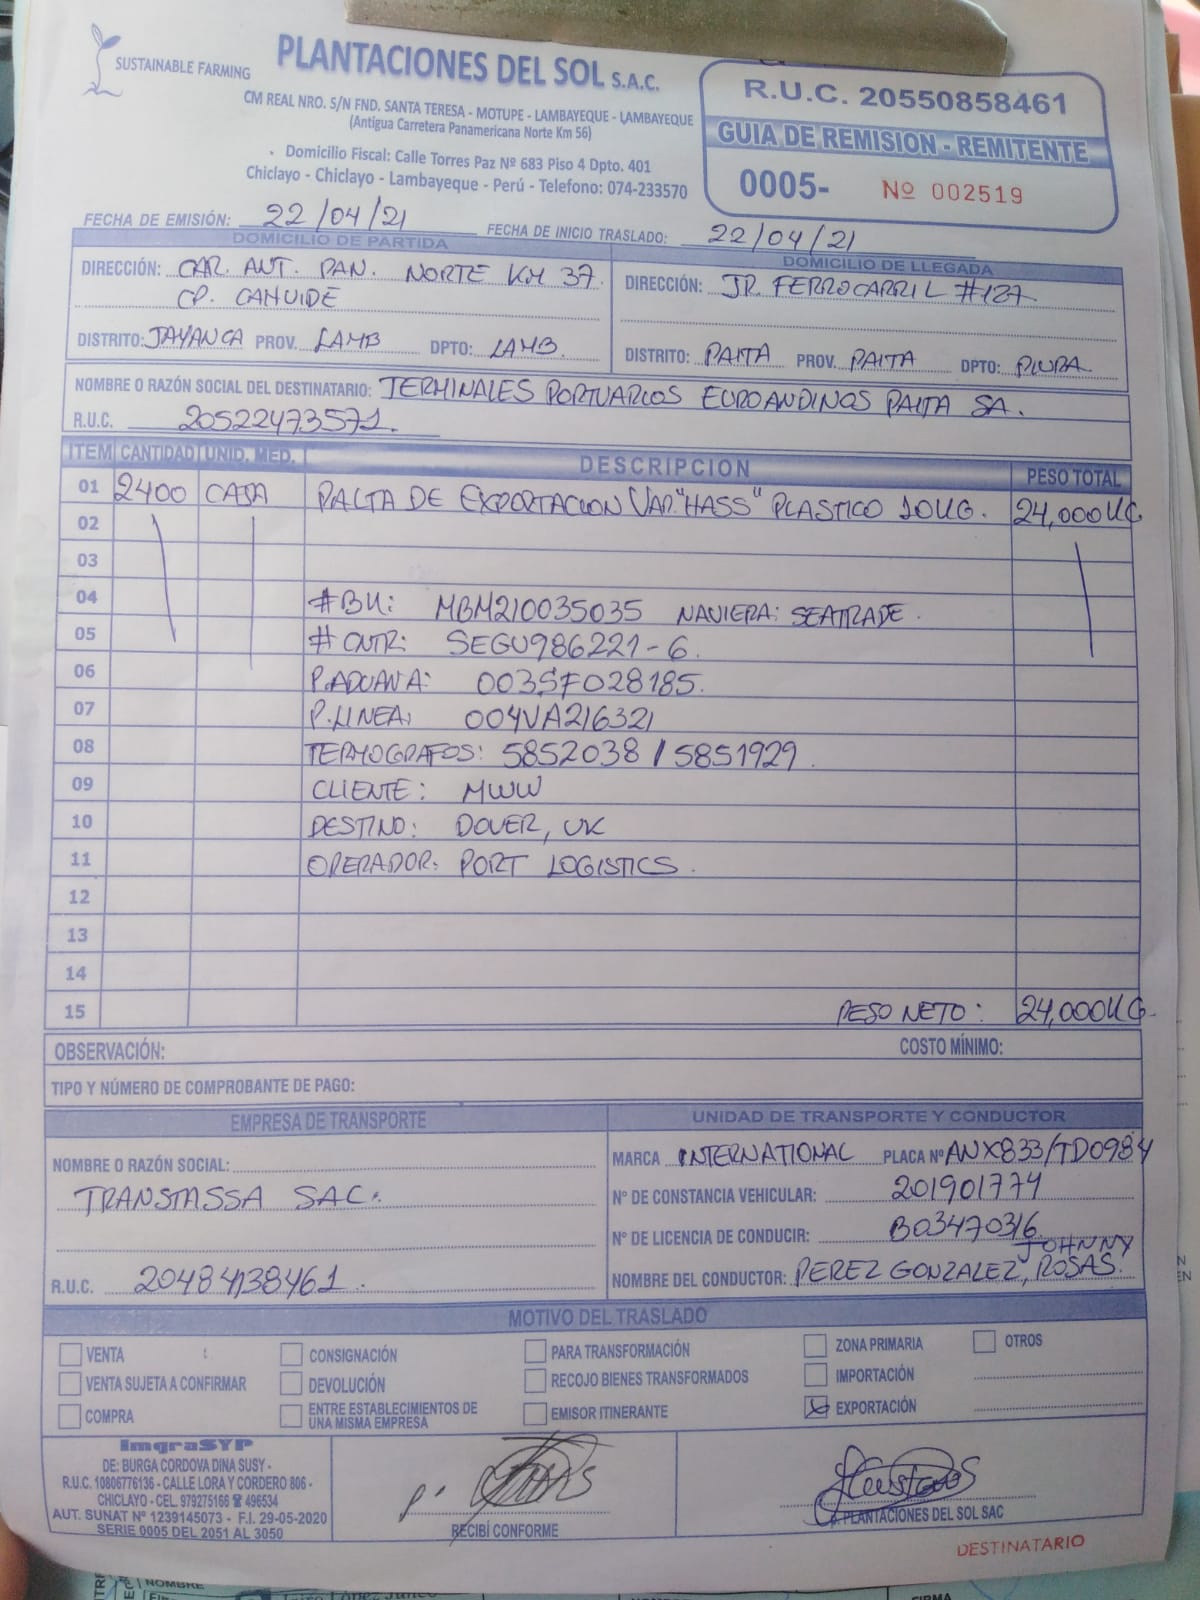 SUSTAINABLE FARMING
PLANTACIONES DEL SOL S.A.C.
CM REAL NRO. S/N FND. SANTA TERESA - MOTUPE - LAMBAYEQUE - LAMBAYEQUE
(Antigua Carretera Panamericana Norte Km 56)
Domicilio Fiscal: Calle Torres Paz Nº 683 Piso 4 Dpto. 401
Chiclayo - Chiclayo - Lambayeque - Perú - Telefono: 074-233570
R.U.C. 20550858461
GUIA DE REMISION - REMITENTE
0005- Nº 002519
FECHA DE EMISIÓN: 22/04/21 FECHA DE INICIO TRASLADO: 22/04/21
DOMICILIO DE PARTIDA
DIRECCIÓN: CAR. ANT. PAN. NORTE KM 37.
CP. CAHUIDE
DISTRITO: JAYANCA PROV. LAMB DPTO: LAMB.
DOMICILIO DE LLEGADA
DIRECCIÓN: JR. FERROCARRIL #127
DISTRITO: PAITA PROV. PAITA DPTO: PIURA
NOMBRE O RAZÓN SOCIAL DEL DESTINATARIO: TERMINALES PORTUARIOS EUROANDINOS PAITA SA.
R.U.C. 20522473571.
ITEM CANTIDAD UNID. MED. DESCRIPCION PESO TOTAL
01 2400 CAJA PALTA DE EXPORTACION VAR. "HASS" PLASTICO 10KG. 24,000KG
02
03
04 #BK: MBM210035035 NAVIERA: SEATRADE.
05 # CNTR: SEGU986221-6.
06 P.ADUANA: 003SF028185.
07 P.LINEA: 004VA216321
08 TERMOGRAFOS: 5852038 / 5851929.
09 CLIENTE: MWW
10 DESTINO: DOVER, UK
11 OPERADOR: PORT LOGISTICS.
12
13
14
15 PESO NETO: 24,000KG.
OBSERVACIÓN: COSTO MÍNIMO:
TIPO Y NÚMERO DE COMPROBANTE DE PAGO:
EMPRESA DE TRANSPORTE
NOMBRE O RAZÓN SOCIAL:
TRANSTASSA SAC.
R.U.C. 20484138461.
UNIDAD DE TRANSPORTE Y CONDUCTOR
MARCA INTERNATIONAL PLACA Nº ANX833/TD0984
Nº DE CONSTANCIA VEHICULAR: 201901774
Nº DE LICENCIA DE CONDUCIR: B03470316
JOHNNY
NOMBRE DEL CONDUCTOR: PEREZ GONZALEZ, ROSAS.
MOTIVO DEL TRASLADO
VENTA CONSIGNACIÓN PARA TRANSFORMACIÓN ZONA PRIMARIA OTROS
VENTA SUJETA A CONFIRMAR DEVOLUCIÓN RECOJO BIENES TRANSFORMADOS IMPORTACIÓN
COMPRA ENTRE ESTABLECIMIENTOS DE UNA MISMA EMPRESA EMISOR ITINERANTE EXPORTACIÓN
ImgraSYP
DE: BURGA CORDOVA DINA SUSY -
R.U.C. 10806776136 - CALLE LORA Y CORDERO 806 -
CHICLAYO - CEL. 979275166 ☎ 496534
AUT. SUNAT Nº 1239145073 - F.I. 29-05-2020
SERIE 0005 DEL 2051 AL 3050
RECIBÍ CONFORME
PLANTACIONES DEL SOL SAC
DESTINATARIO
NOMBRE
FIRMA